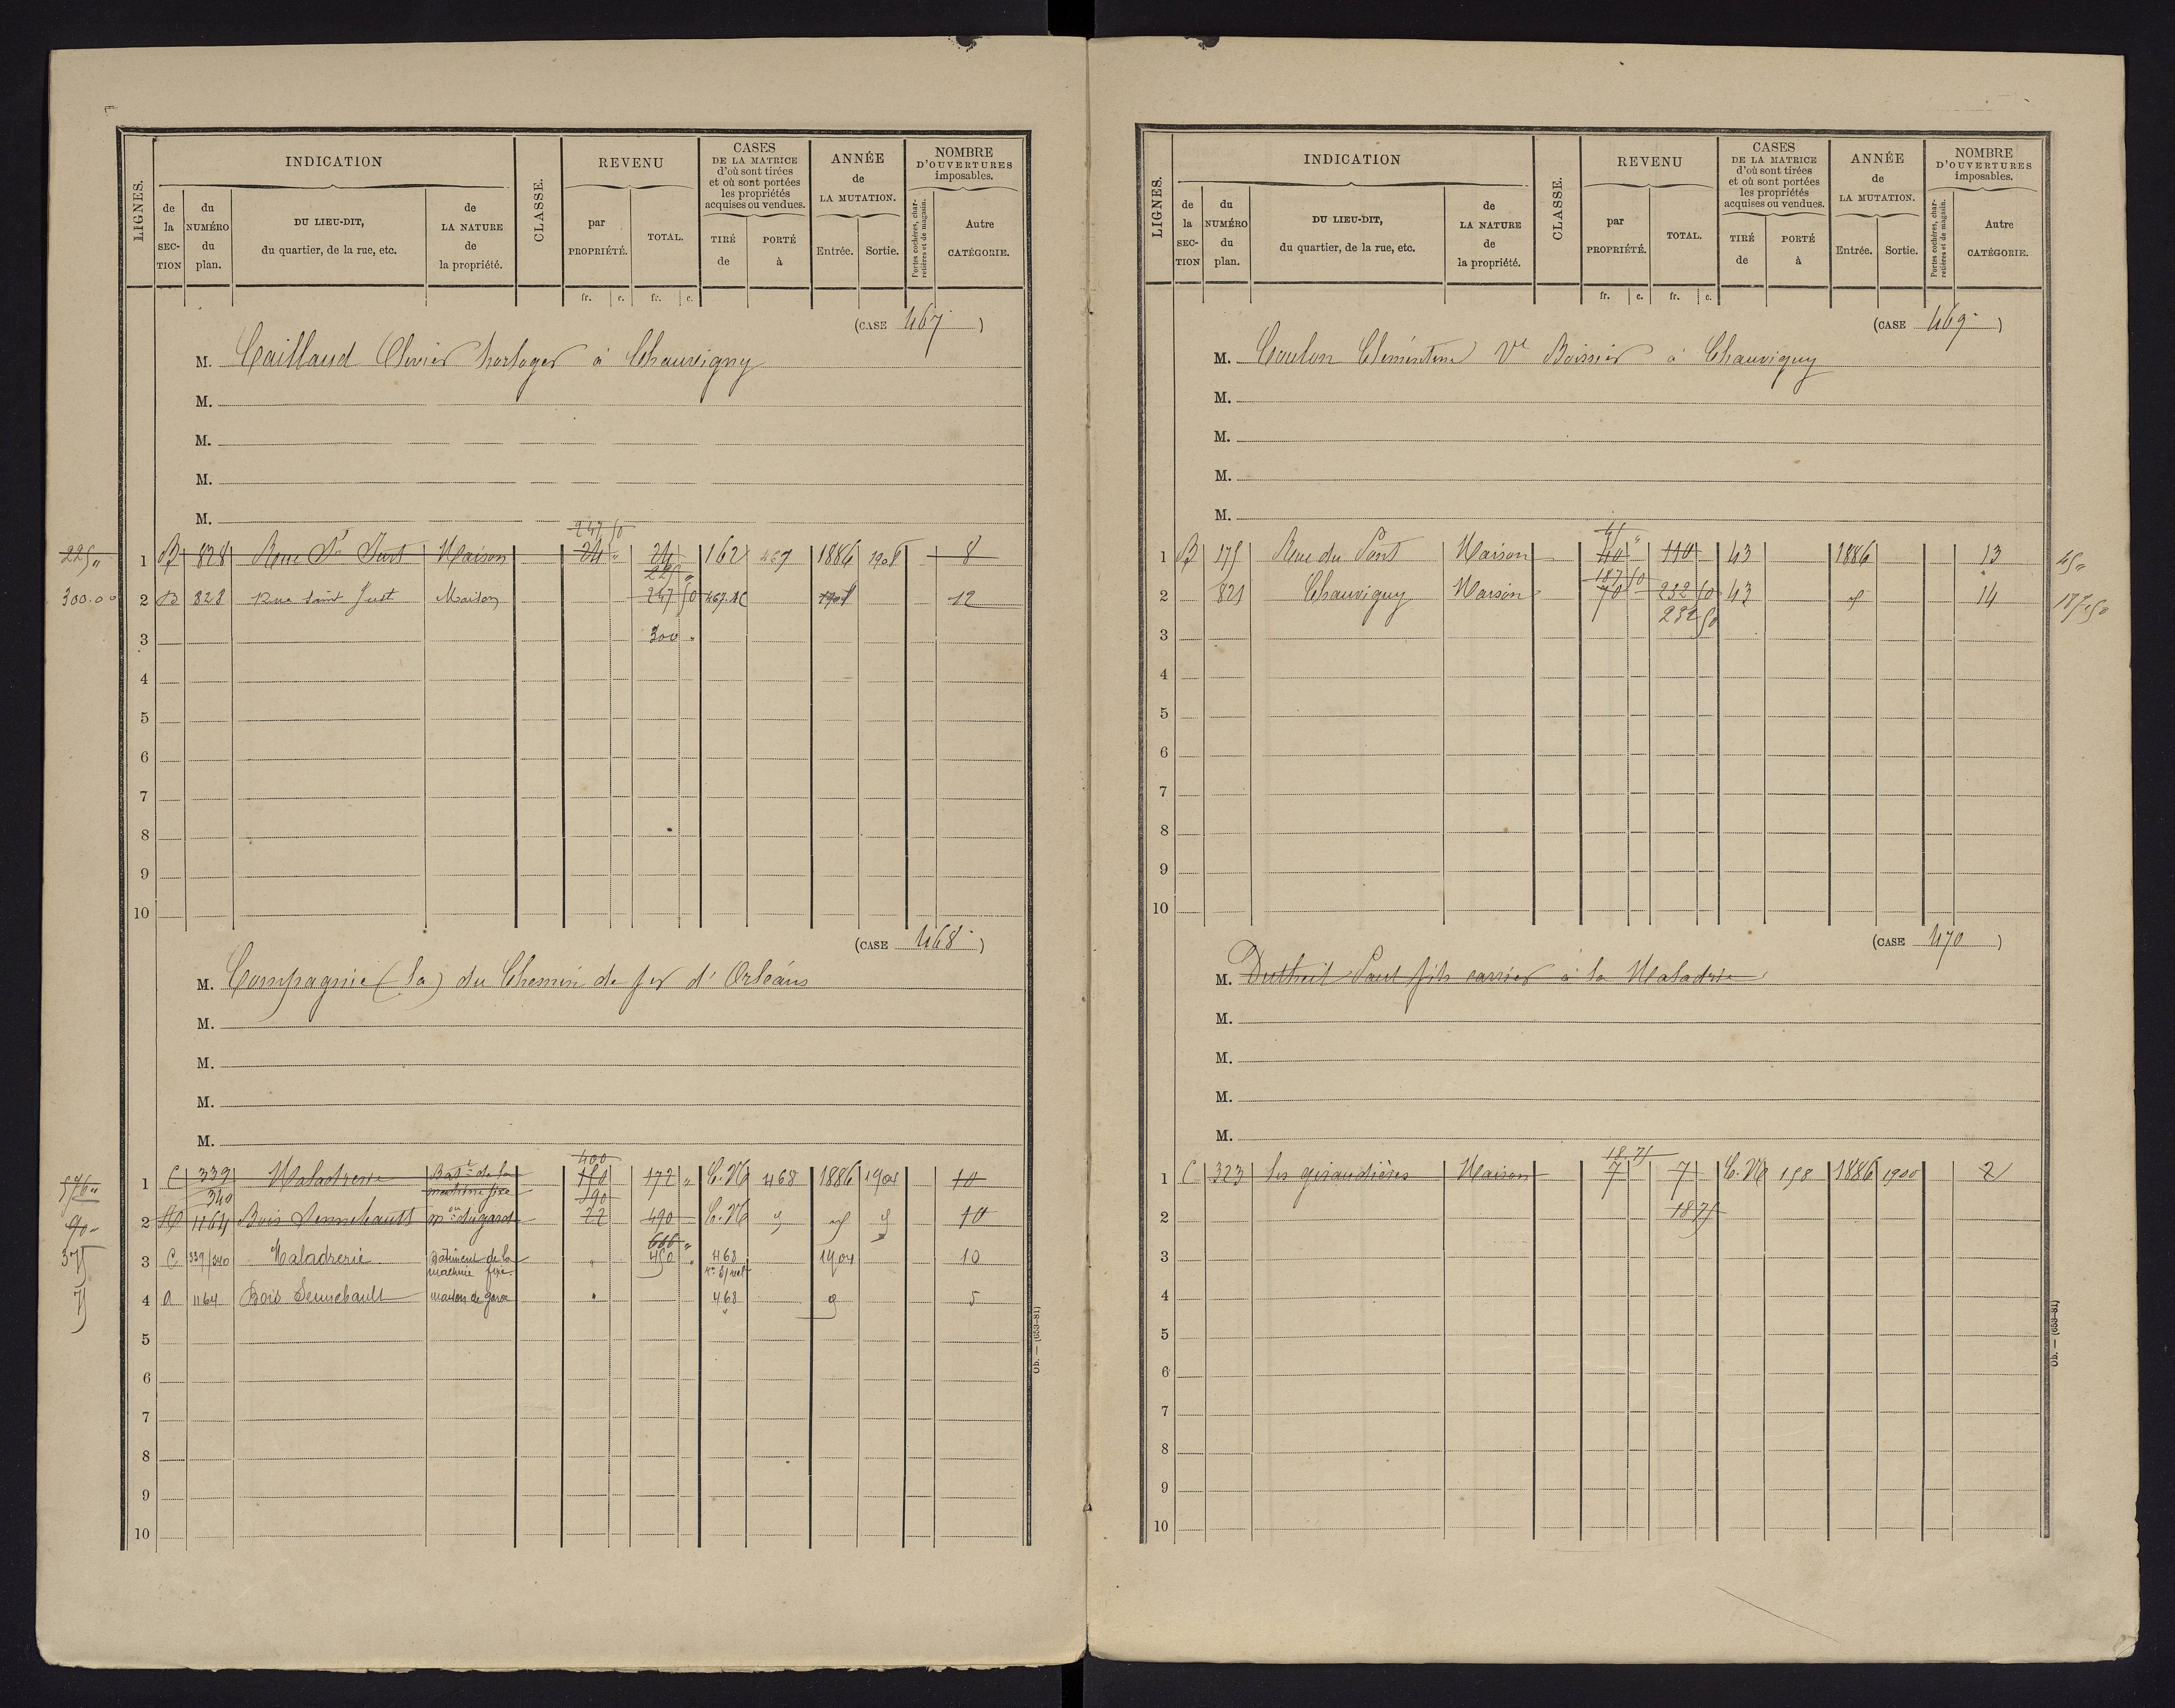 LIGNES.
INDICATION
de la SECTION
du NUMÉRO du plan.
DU LIEU-DIT, du quartier, de la rue, etc.
de LA NATURE de la propriété.
CLASSE.
REVENU
par PROPRIÉTÉ.
TOTAL.
CASES DE LA MATRICE d'où sont tirées et où sont portées les propriétés acquises ou vendues.
TIRÉ de
PORTÉ à
ANNÉE de LA MUTATION.
Entrée.
Sortie.
NOMBRE D'OUVERTURES imposables.
Portes cochères, charretières et de magasin.
Autre CATÉGORIE.
fr. c. fr. c.
(CASE 467)
M. Caillaud Olivier horloger à Chauvigny
M.
M.
M.
M.
247 50
225 " 1 B 828 Rue St Just Maison 24 " 24 162 467 1886 1908 8
225 "
300.00 2 B 828 Rue Saint Just Maison 247 50 467 1908 12
3 300 "
4
5
6
7
8
9
10
(CASE 468)
M. Compagnie (la) du Chemin de fer d'Orléans
M.
M.
M.
M.
400
1 C 339 340 Maladrerie Batt de la machine fixe 172 " C.N 468 1886 1904 10
190
90 " 2 1164 Bois Sennebault mon du garde 490 C.N 10
375 3 C 339/340 Maladrerie Bâtiment de la machine fixe 450 " 468 1904 10
75 4 A 1164 Bois Sennebault maison de garde 468 5
5
6
7
8
9
10
Ob. — (653-81)
LIGNES.
INDICATION
de la SECTION
du NUMÉRO du plan.
DU LIEU-DIT, du quartier, de la rue, etc.
de LA NATURE de la propriété.
CLASSE.
REVENU
par PROPRIÉTÉ.
TOTAL.
CASES DE LA MATRICE d'où sont tirées et où sont portées les propriétés acquises ou vendues.
TIRÉ de
PORTÉ à
ANNÉE de LA MUTATION.
Entrée.
Sortie.
NOMBRE D'OUVERTURES imposables.
Portes cochères, charretières et de magasin.
Autre CATÉGORIE.
fr. c. fr. c.
(CASE 469)
M. Coulon Clémentine Ve Boissier à Chauvigny
M.
M.
M.
M.
45
1 B 175 Rue du Pont Maison 40 " 110 43 1886 13 45 "
187 50
2 821 Chauvigny Maison 70 232 50 43 14 187,50
232 50
3
4
5
6
7
8
9
10
(CASE 470)
M. Dutheil Paul fils carrier à la Maladrie
M.
M.
M.
M.
18 75
1 C 323 les giraudières Maison 7 7 C.N 158 1886 1900 2
2 18 75
3
4
5
6
7
8
9
10
Ob. — (653-81)